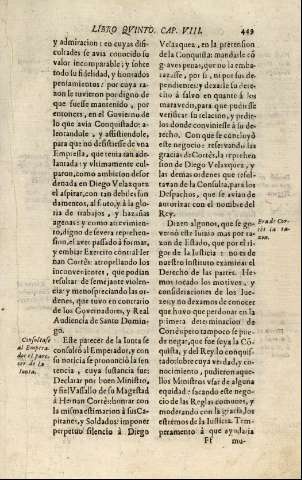 LIBRO QVINTO. CAP. VIII. 449
y admiracion: en cuyas difi-
cultades se avia conocido su
valor incomparable; y sobre
todo su fidelidad, y honrados
pensamientos: por cuya ra-
zon le tuvieron por digno de
que fuesse mantenido, por
entonces, en el Govierno de
lo que avia Conquistado: a-
lentandole, y assistiendole,
para que no desistiesse de vna
Empressa, que tenia tan ade-
lantada: y vltimamente cul-
paron, como ambicion desor
denada en Diego Velazquez
el aspirar, con tan debiles fun
damentos, al fruto, y à la glo-
ria de trabajos, y hazañas
agenas: y como atrevimien-
to, digno de severa reprehen-
sion, el aver passado à formar,
y embiar Exercito contra Her
nan Cortès: atropellando los
inconvenientes, que podian
resultar de semejante violen-
cia; y menospreciando las or-
denes, que tuvo en contrario
de los Governadores, y Real
Audiencia de Santo Domin-
go.
Este parecer de la Iunta se
consultò al Emperador, y con
su noticia se pronunciò la sen
tencia, cuya sustancia fue:
Declarar por buen Ministro,
y fiel Vassallo de su Magestad
à Hernan Cortès: honrar con
la misma estimacion à sus Ca-
pitanes, y Soldados: imponer
perpetuo silencio à Diego
Consultase
al Empera-
dor el pare-
cer de la
Iunta.
Velazquez, en la pretension
de la Conquista: mandarle cō
graves penas, que no la emba-
razasse, por si, ni por sus de-
pendientes; y dexarle su dere-
cho à salvo en quanto à los
maravedis, para que pudiesse
verificar su relacion, y pedir-
los donde conviniesse à su de-
recho. Con que se concluyò
este negocio: reservando las
gracias de Cortès, la reprehen
sion de Diego Velazquez, y
las demas ordenes que resul-
tavan de la Consulta, para los
Despachos, que se avian de
autorizar con el nombre del
Rey.
Dizen algunos, que se go-
vernò este Iuizio mas por ra-
zon de Estado, que por el ri-
gor de la Iusticia: no es de
nuestro instituto examinar el
Derecho de las partes. Hemos
tocado los motivos, y
consideraciones de los Iue-
zes; y no dexamos de conocer
que huvo que perdonar en la
primera determinacion de
Cortès; pero tampoco se pue-
de negar, que fue suya la Cō-
quista, y del Rey lo conquis-
tado: sobre cuya verdad, y co-
nocimiento, pudieron aque-
llos Ministros vsar de alguna
equidad: sacando este nego-
cio de las Reglas comunes, y
moderando con la gracia los
estremos de la Iusticia. Tem-
peramento à que ayudaria
Era de Cor-
tès la ra-
zon.
Ff mu-